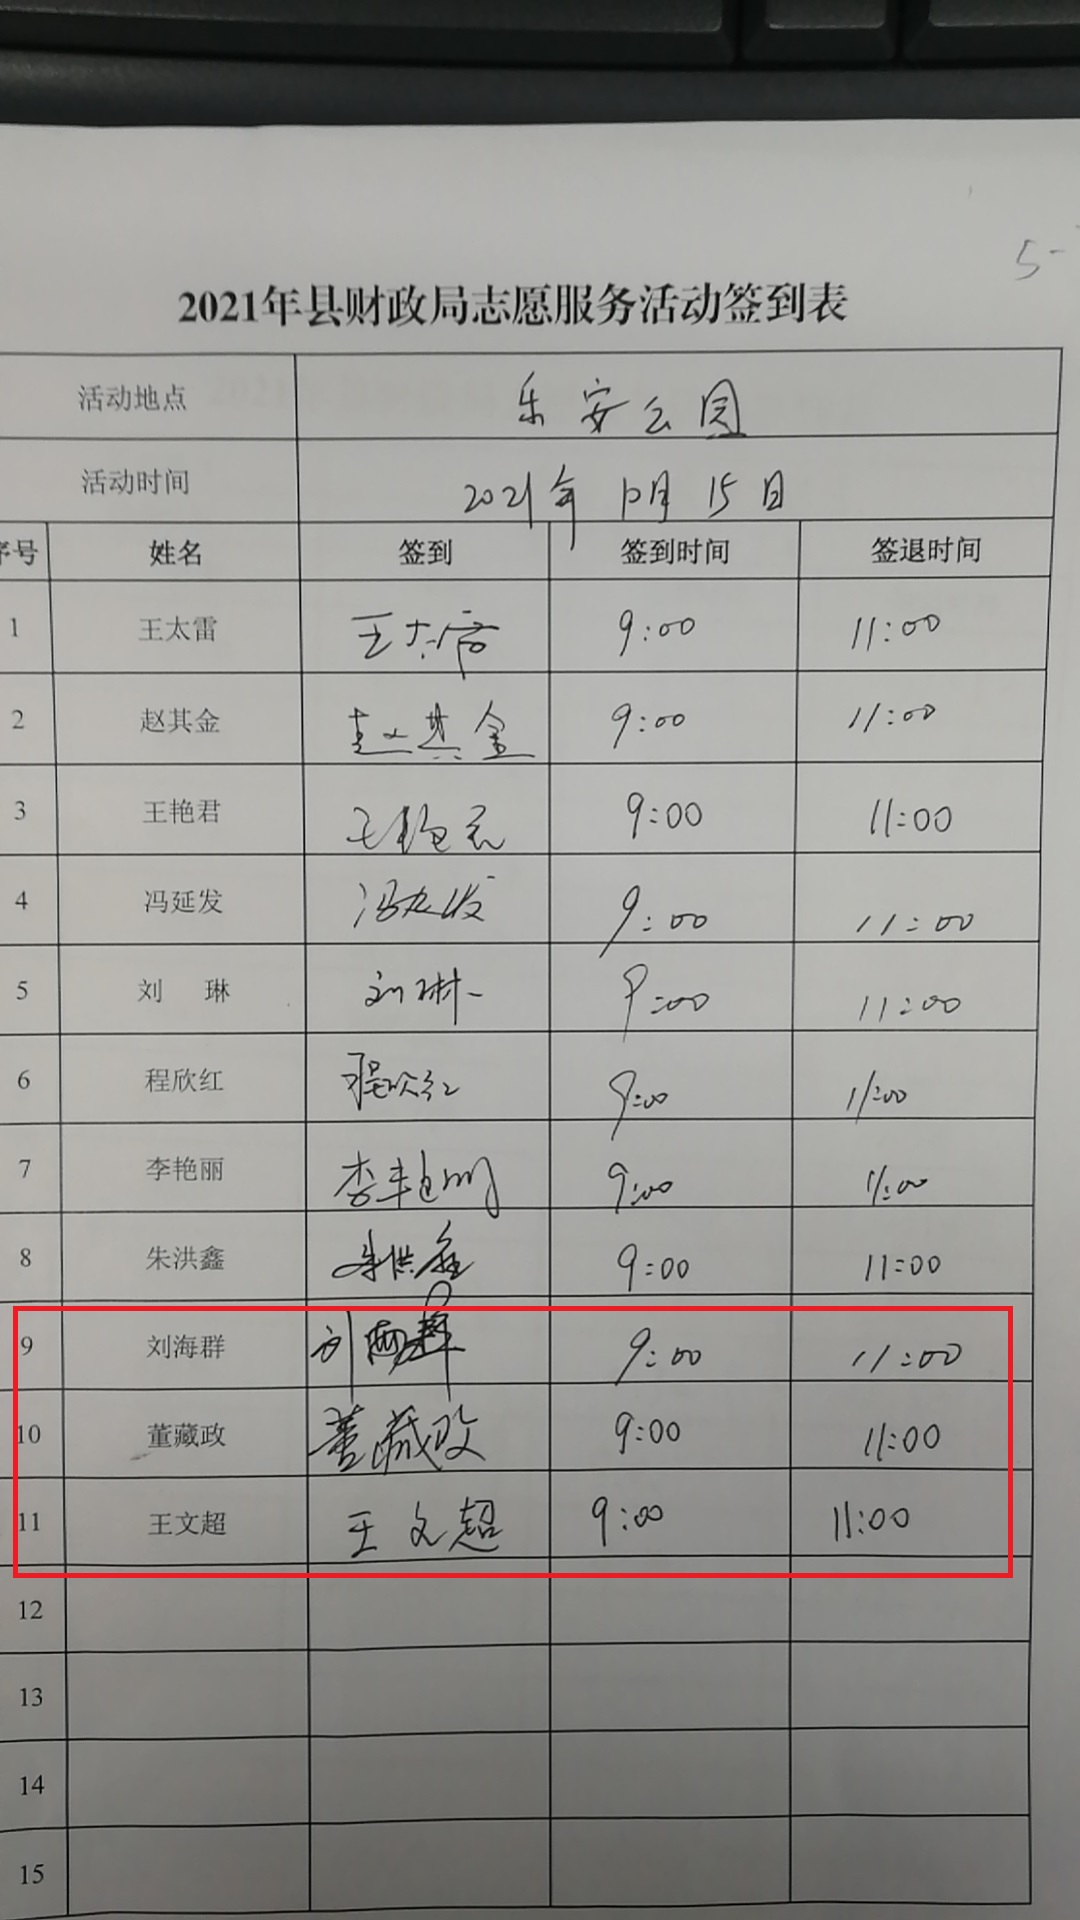 5-
2021年县财政局志愿服务活动签到表
活动地点 乐安公园
活动时间 2021年10月15日
序号 姓名 签到 签到时间 签退时间
1 王太雷 王太雷 9:00 11:00
2 赵其金 赵其金 9:00 11:00
3 王艳君 王艳君 9:00 11:00
4 冯延发 冯延发 9:00 11:00
5 刘 琳 刘琳 9:00 11:00
6 程欣红 程欣红 9:00 11:00
7 李艳丽 李艳丽 9:00 11:00
8 朱洪鑫 朱洪鑫 9:00 11:00
9 刘海群 刘海群 9:00 11:00
10 董藏政 董藏政 9:00 11:00
11 王文超 王文超 9:00 11:00
12
13
14
15